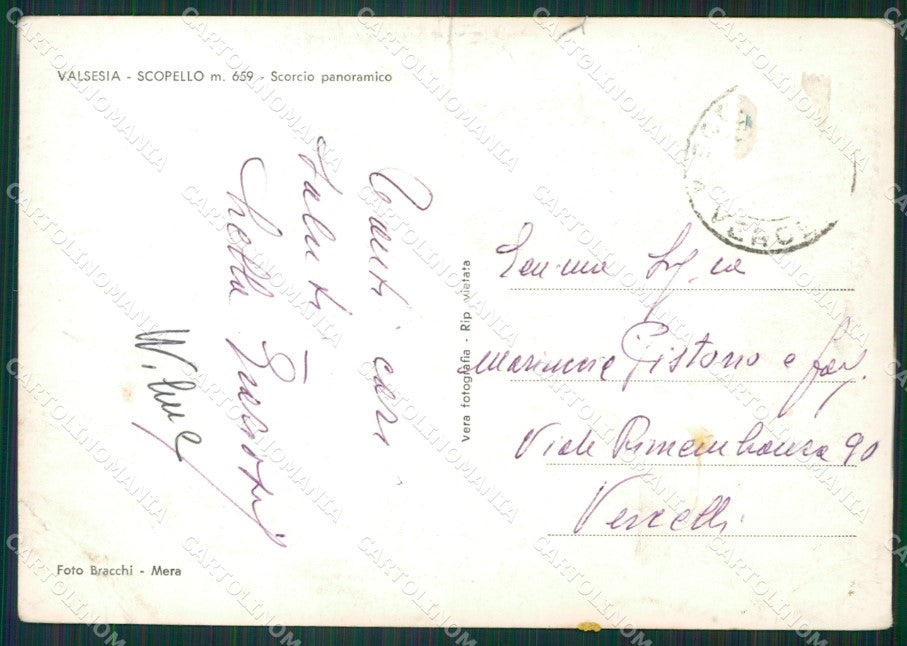 VALSESIA - SCOPELLO m. 659 - Scorcio panoramico
Tanti cari
saluti
Wilma
Vera fotografia - Rip. vietata
Gen.ma Sig.na
Pistono e fam.
Viale Rimembranza 90
Vercelli
Foto Bracchi - Mera
CARTOLINOMANIA